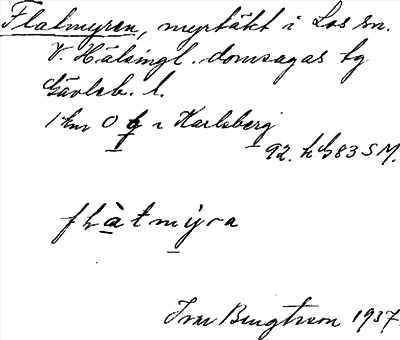 Flatmyren, myrtäkt i Los sn.
V. Hälsingl. domsagas tg
Gävleb. l.
1 km O Karlsberg
92. SM.
flàtmyra
Bengtsson 1937.